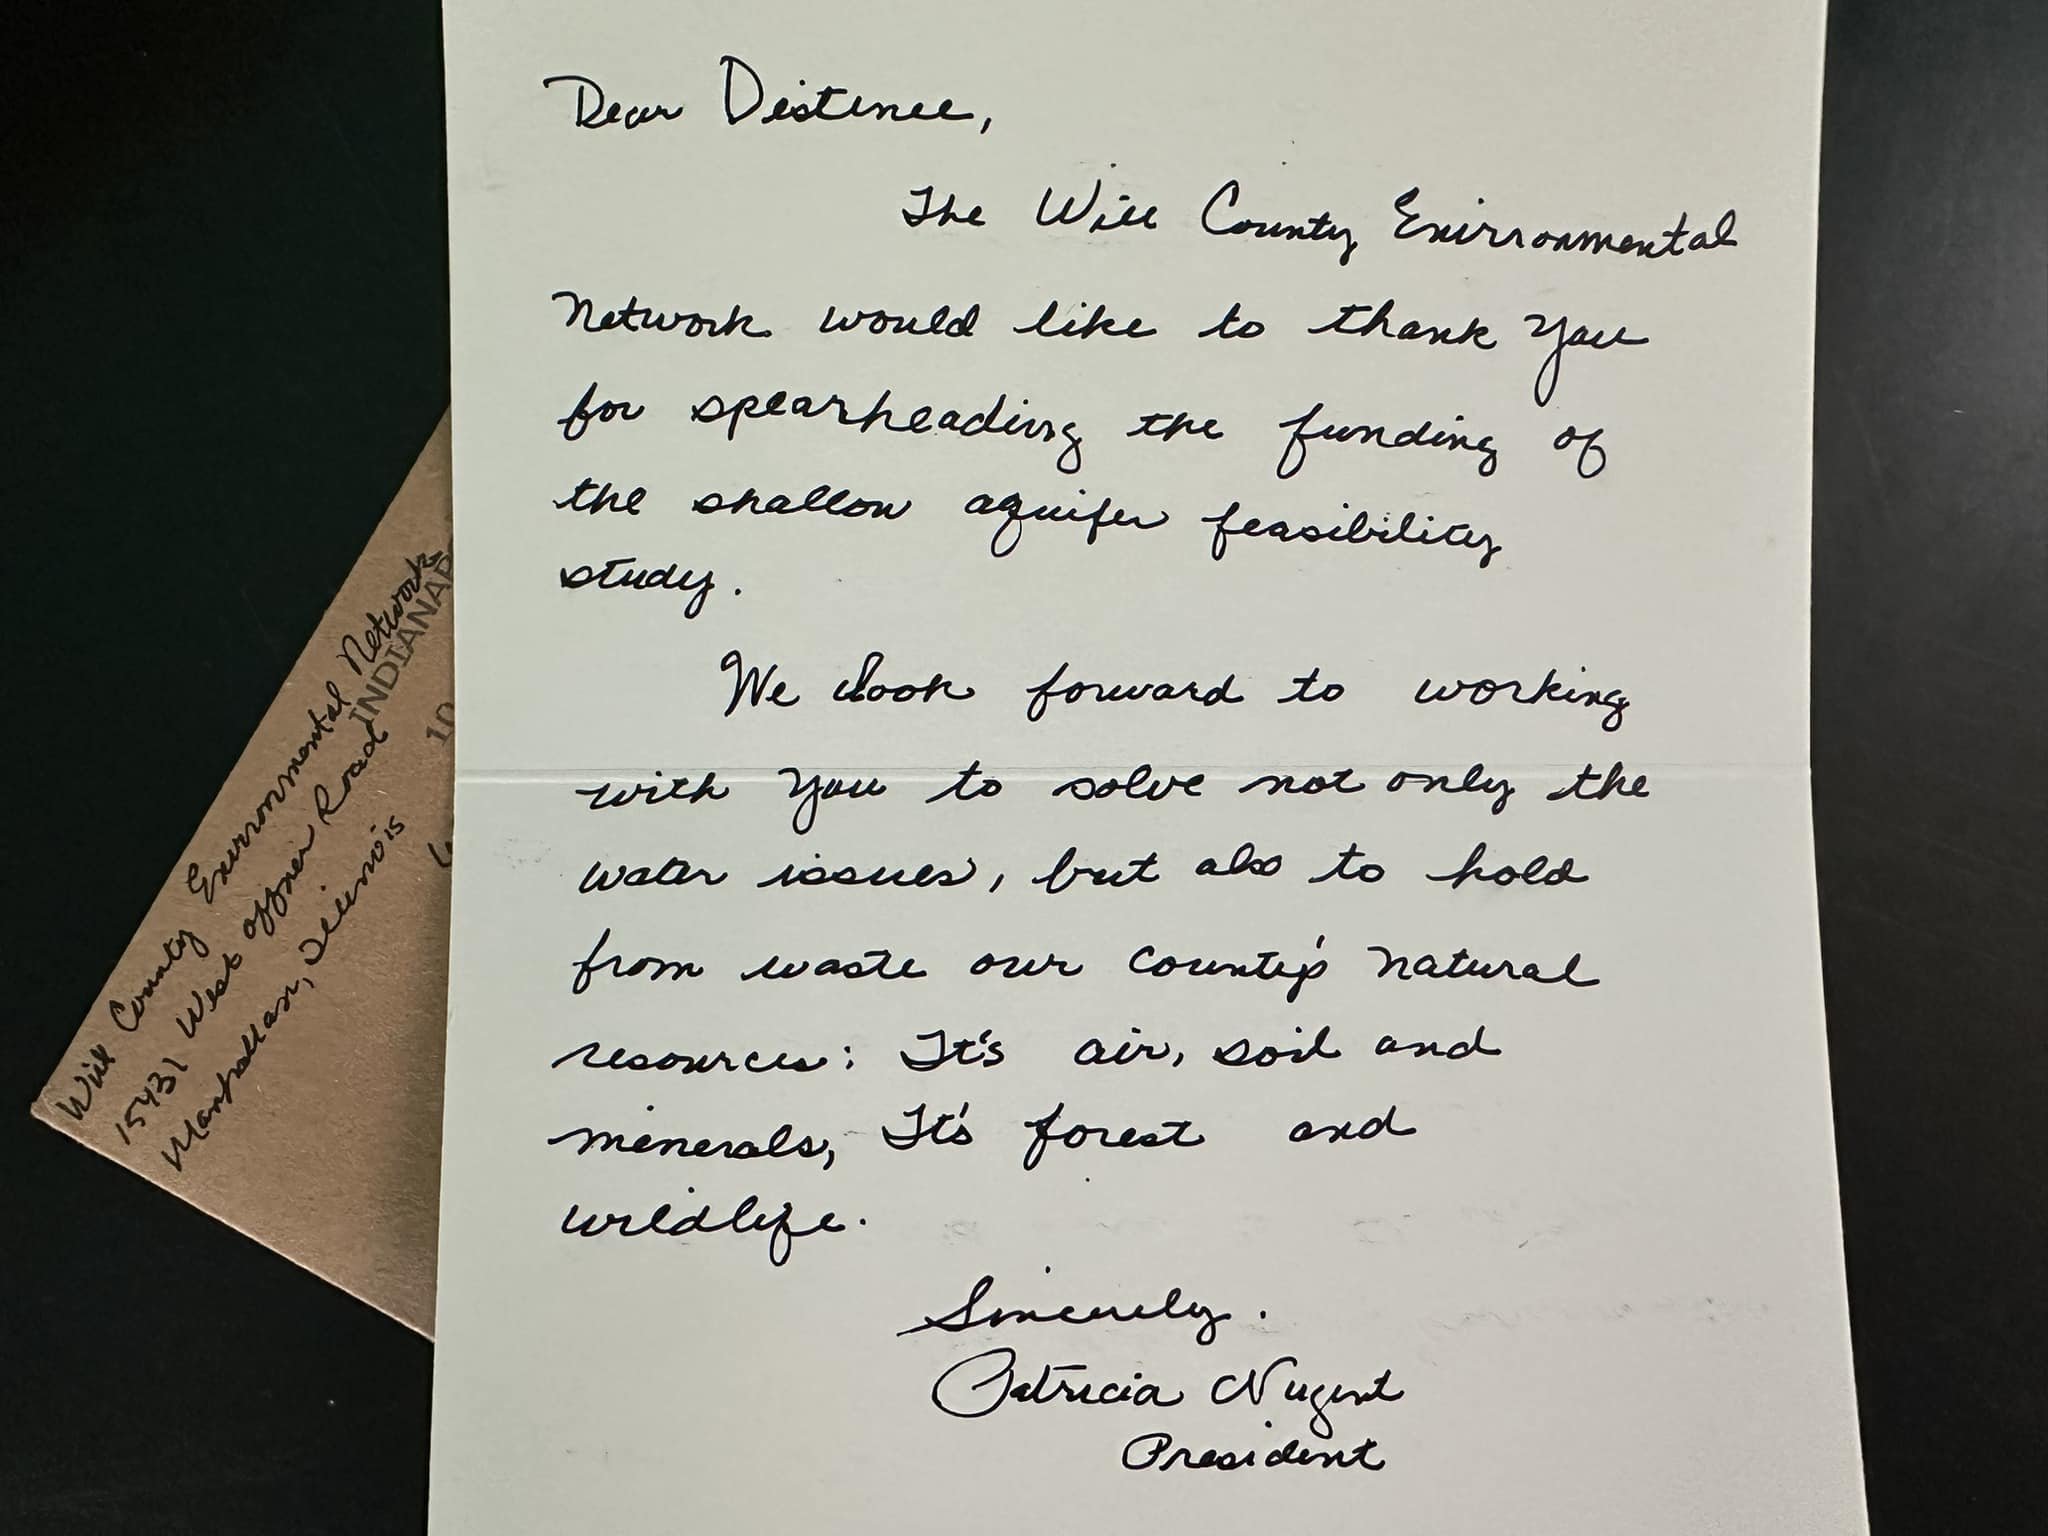 Dear Distinee,
The Will County Environmental
Network would like to thank you
for spearheading the funding of
the shallow aquifer feasibility
study.
We look forward to working
with you to solve not only the
water issues, but also to hold
from waste our county's natural
resources: It's air, soil and
minerals, It's forest and
wildlife.
Sincerely.
Patricia Nugent
President
Will County Environmental Network
15431 West Offner Road
Manhattan, Illinois
INDIANAP